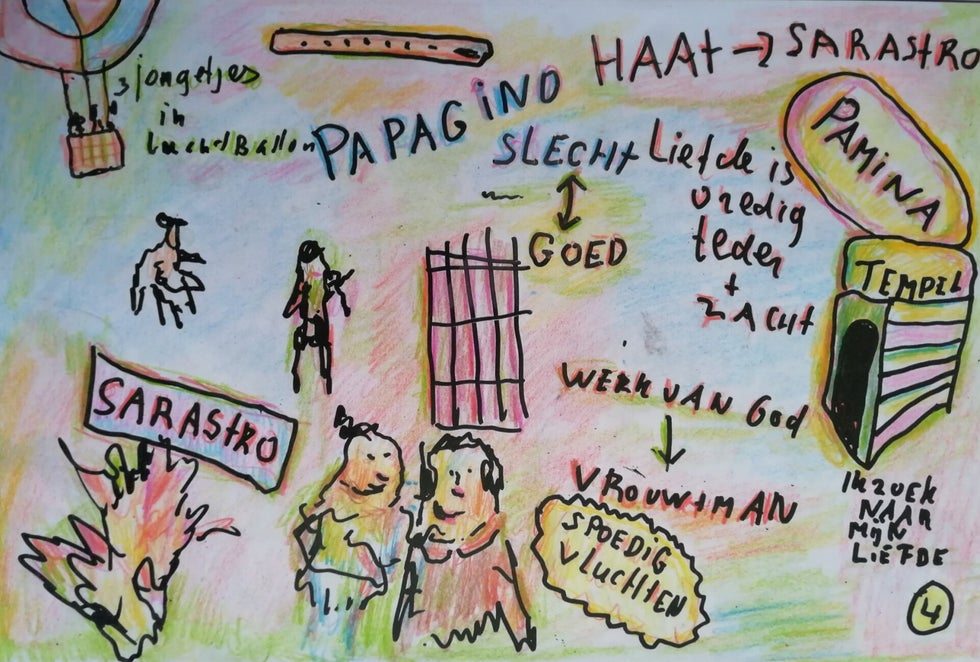 3 jongetjes
in
LuchtBallon
PAPAGINO
HAAt → SARAStRO
PAMiNA
SLECHt
↕
GOED
Liefde is
vredig
teder
+
ZACHt
TEMPEL
SARAStRO
WERK VAN God
↓
VROUW+MAN
SPOEDiG
VluchtEN
IK ZOEK
NAAR
MijN
LiEFDE
4